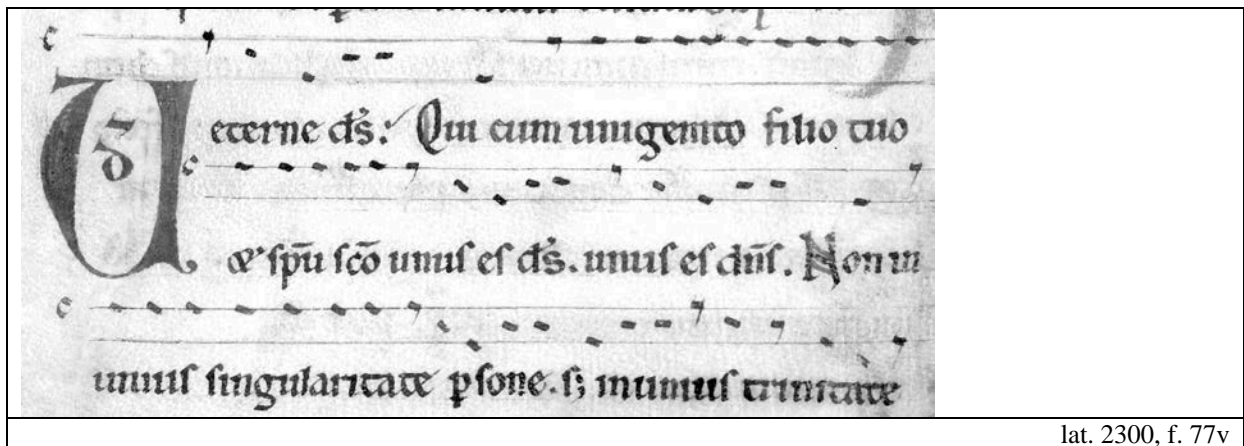 eterne ds: Qui cum unigenito filio tuo
& spū scō unus es ds. unus es dns. Non in
unius singularitate psone. s; in unius trinitate
lat. 2300, f. 77v